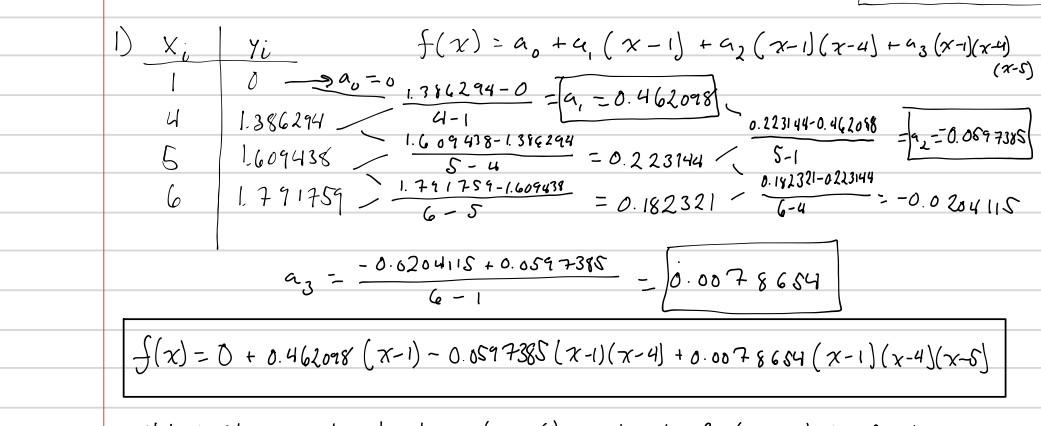 1) xᵢ yᵢ f(x) = a₀ + a₁ (x-1) + a₂ (x-1)(x-4) + a₃ (x-1)(x-4)(x-5)
1 0 → a₀ = 0 (1.386294-0)/(4-1) = a₁ = 0.462098
4 1.386294 (0.223144-0.462098)/(5-1) = a₂ = -0.0597385
5 1.609438 (1.609438-1.386294)/(5-4) = 0.223144
6 1.791759 (1.791759-1.609438)/(6-5) = 0.182321 (0.182321-0.223144)/(6-4) = -0.0204115
a₃ = (-0.0204115 + 0.0597385)/(6-1) = 0.0078654
f(x) = 0 + 0.462098 (x-1) - 0.0597385 (x-1)(x-4) + 0.0078654 (x-1)(x-4)(x-5)